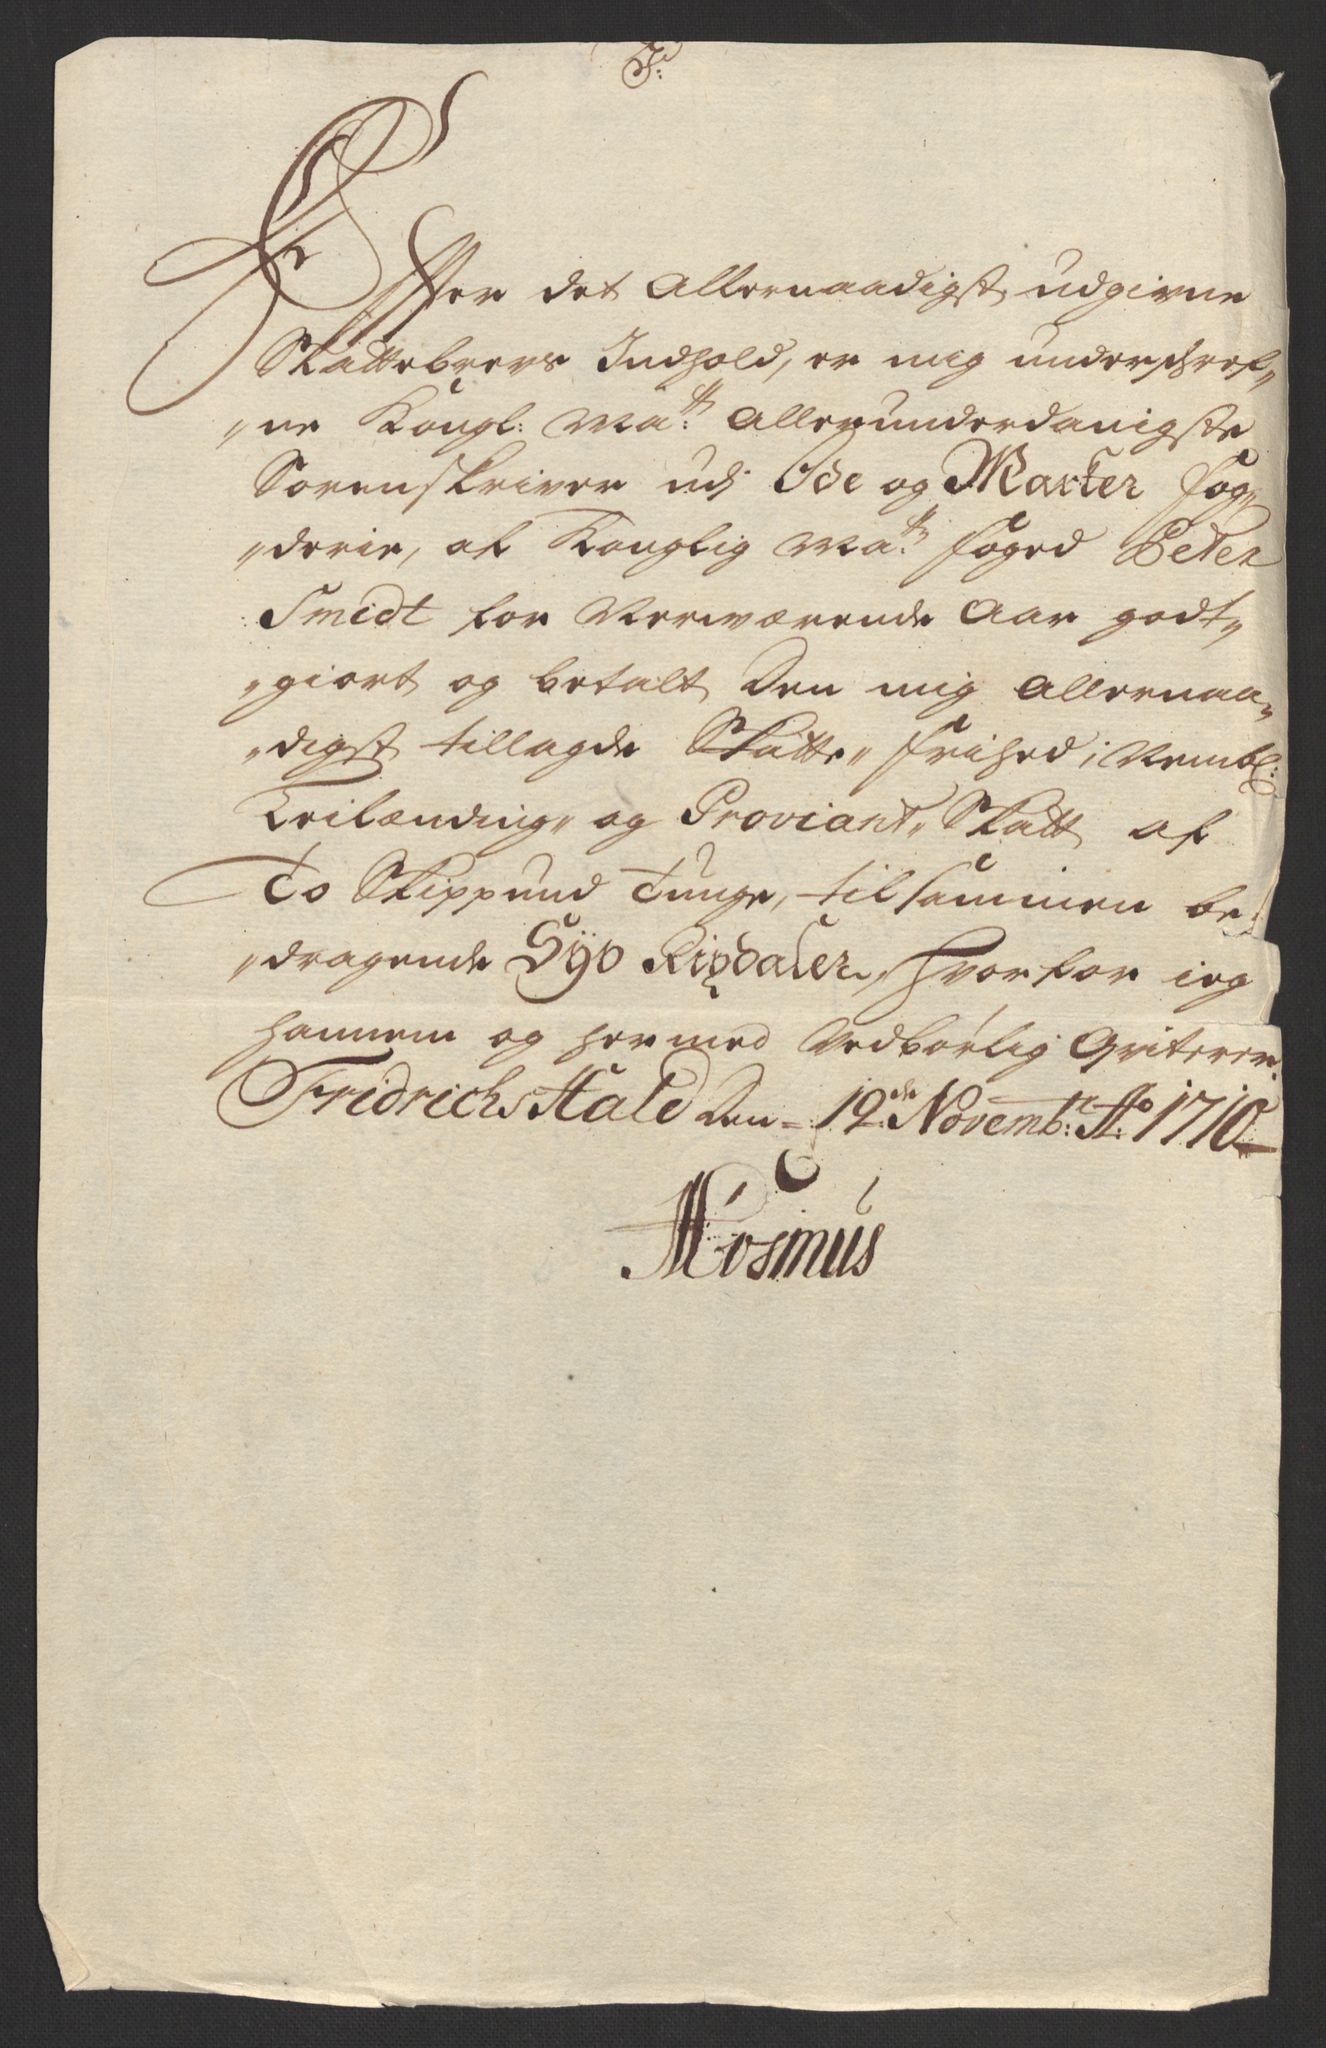 Efter det Allernaadigst udgivne
Skattebrevs Indhold, er mig underschref„
„ne Kongl: Ma:ts Allerunderdanigste
Sorenskriver udj Ide og Marker fog„
„derie, af Konglig Ma:ts foged Peter
Smidt for Nerværende Aar godt„
„giort og betalt Den mig Allernaa„
„digst tillagde Skatte„ frihed, Nembl:
Leilænding„ og Proviant„ Skatt af
To Skippund Tunge, tilsammen be„
„dragende Syv Rixdaler, hvorfor ieg
hannem og hermed Vedbørlig Qviterer.
FridrichsHald Den 19:de Novemb:r Ao: 1710
AMosmus